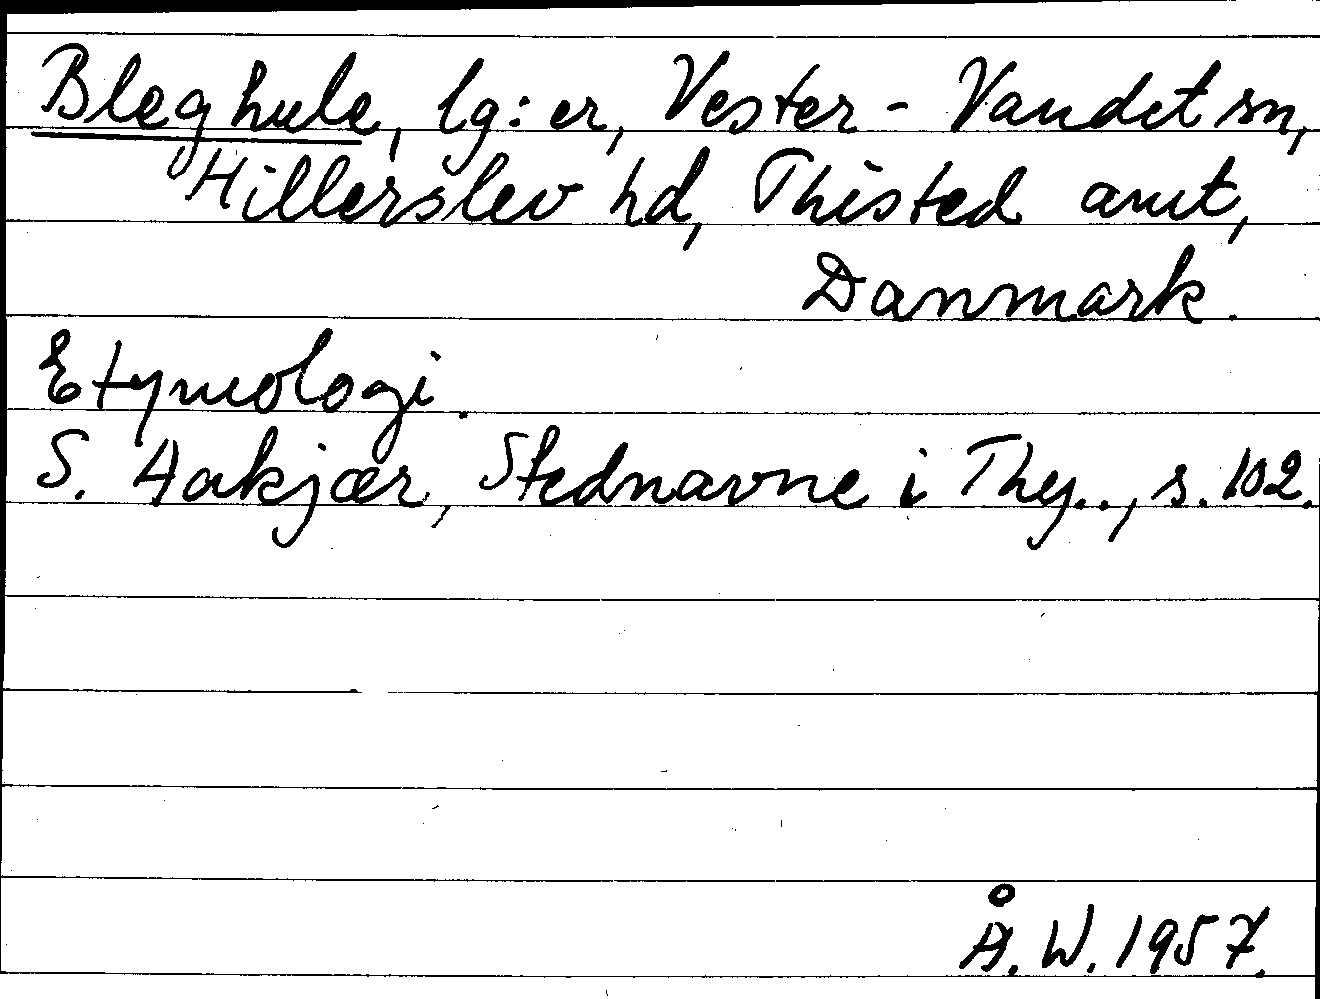 Bleghule, lg:er, Vester-Vandet sn,
Hillerslev hd, Thisted amt,
Danmark.
Etymologi.
S. Aakjær, Stednavne i Thy.., s. 102.
Å. W. 1957.